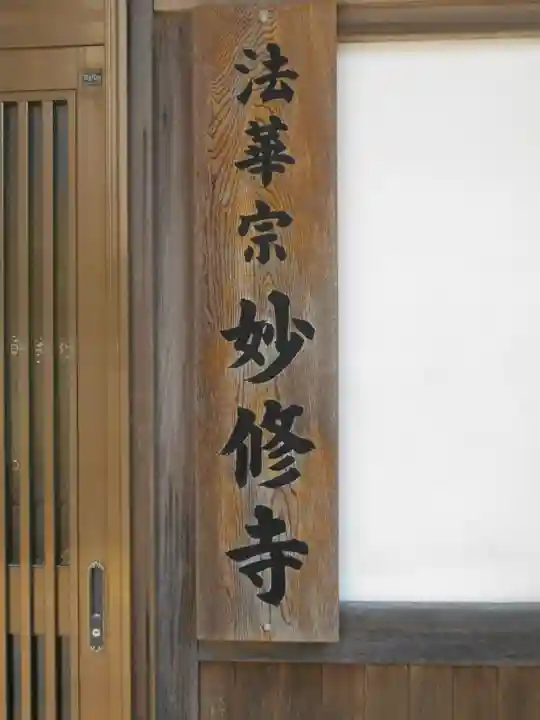 法華宗 妙修寺